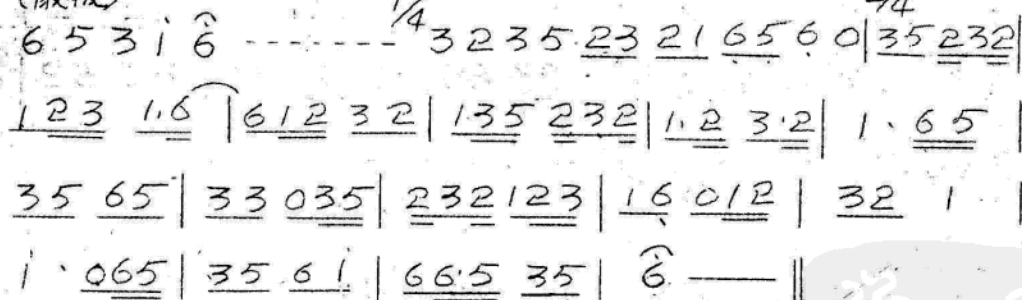 6 5 3 i 6 - - - - - - - - 1/4 3 2 3 5 23 21 65 6 0 | 35 232 |
123 1.6 | 612 32 | 135 232 | 1.2 3.2 | 1 . 65 |
35 65 | 33 035 | 232 123 | 16 012 | 32 1 |
i . 065 | 35 6i | 66.5 35 | 6 —— ‖